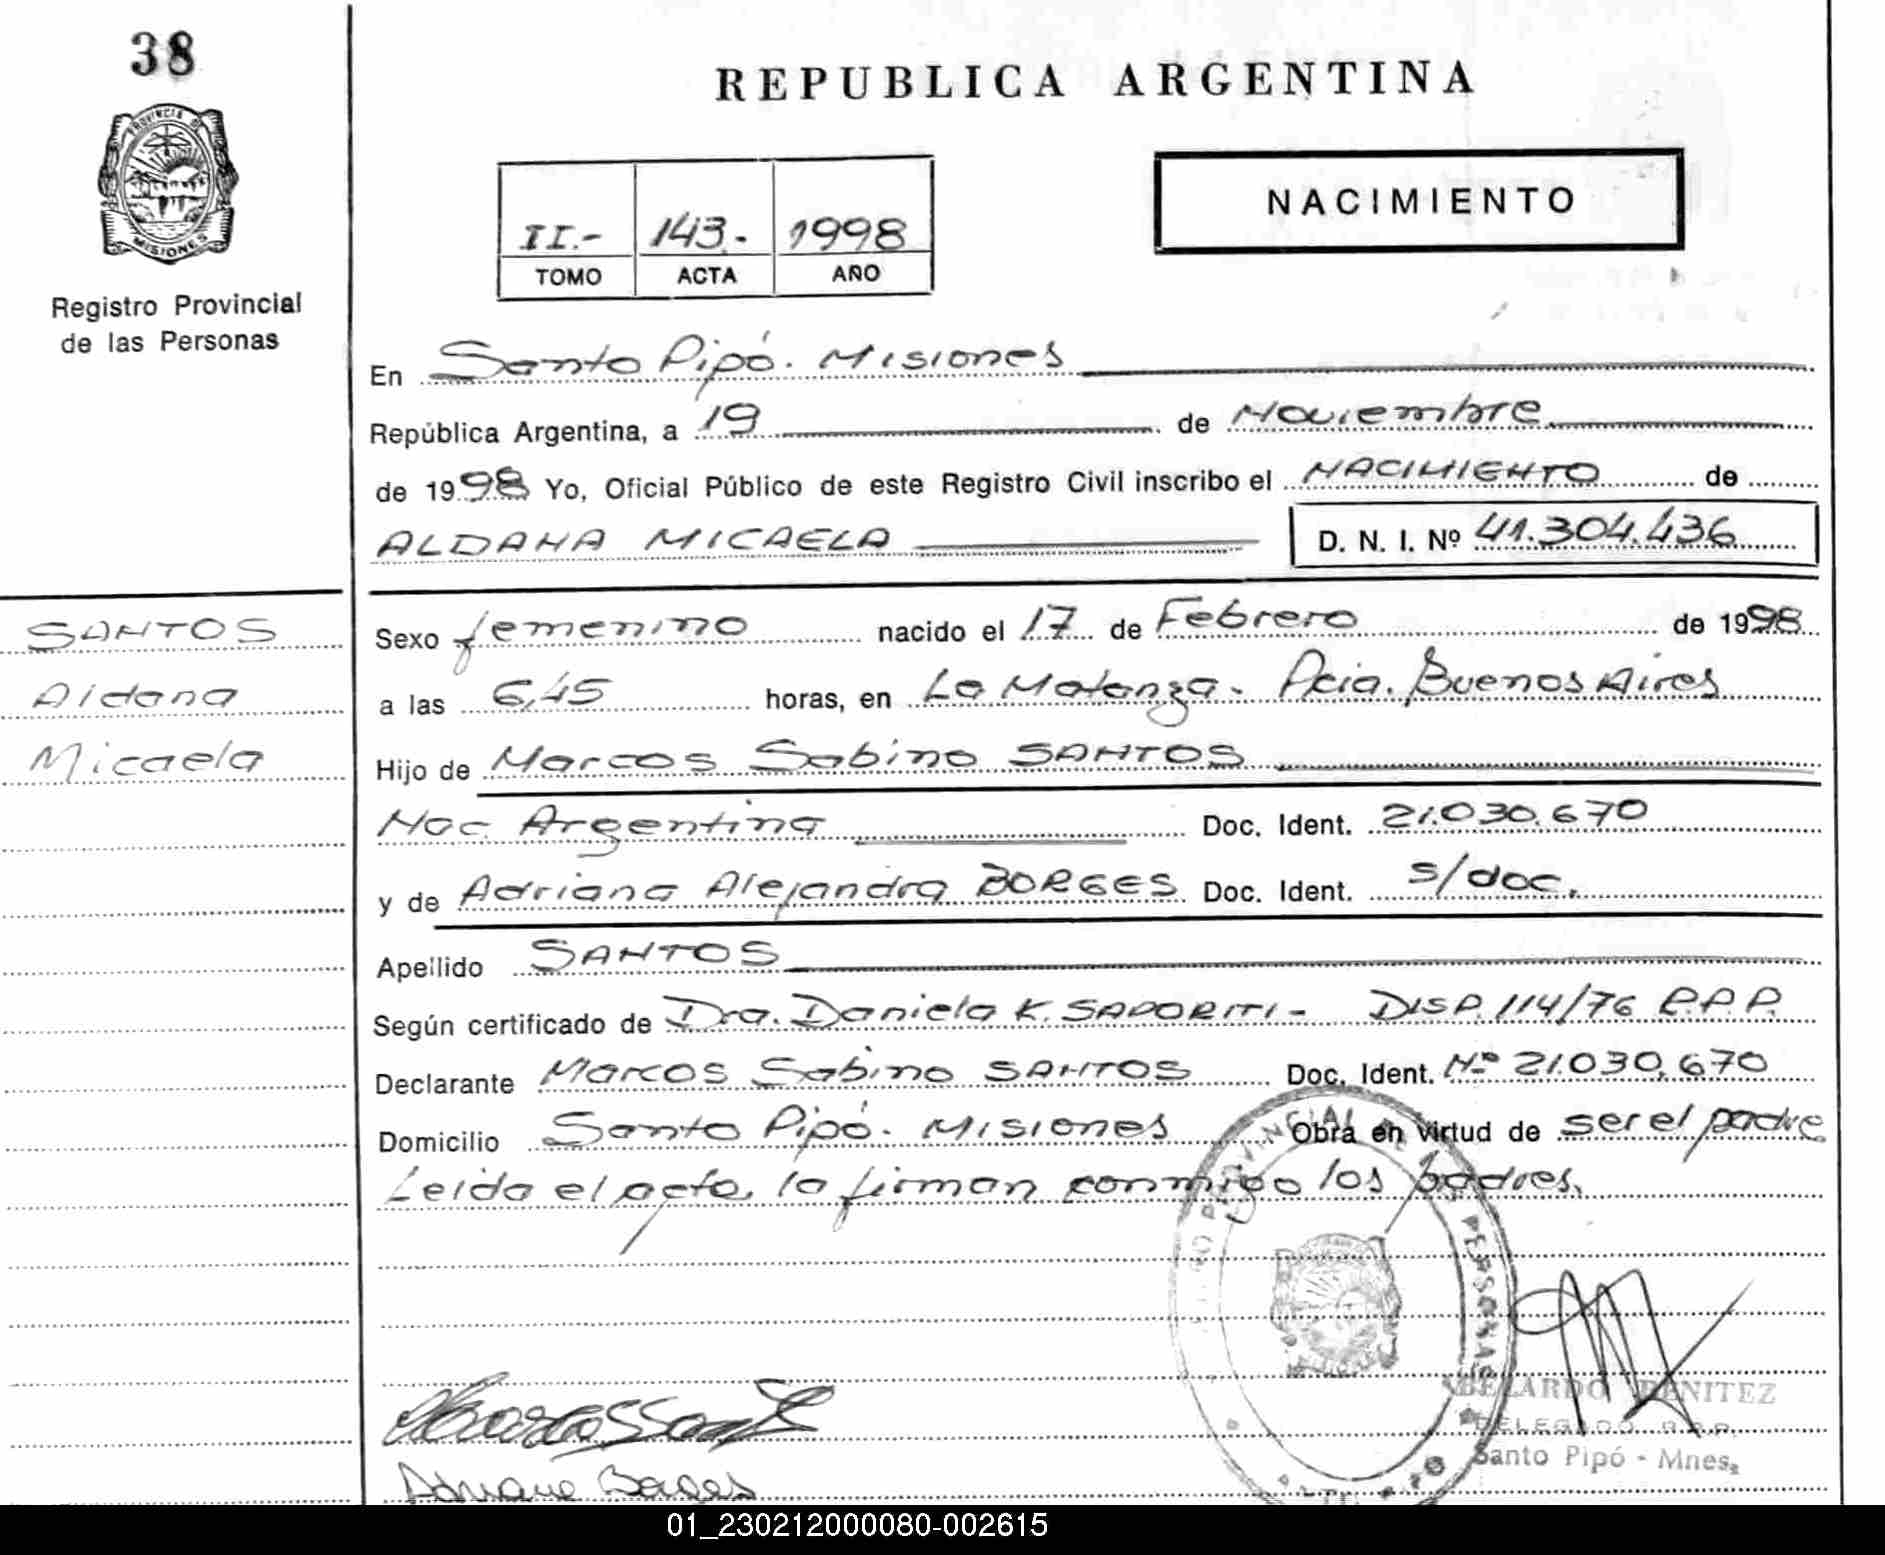 38
PROVINCIA DE
MISIONES
Registro Provincial
de las Personas
REPUBLICA ARGENTINA
NACIMIENTO
II.- 143.- 1998
TOMO ACTA AÑO
En Santo Pipó. Misiones
República Argentina, a 19 de Noviembre
de 1998 Yo, Oficial Público de este Registro Civil inscribo el NACIMIENTO de
ALDANA MICAELA D. N. I. Nº 41.304.436
SANTOS
Aldana
Micaela
Sexo femenino nacido el 17 de Febrero de 1998
a las 6,45 horas, en La Matanza - Pcia. Buenos Aires
Hijo de Marcos Sabino SANTOS
Nac. Argentina Doc. Ident. 21.030.670
y de Adriana Alejandra BORGES Doc. Ident. s/doc.
Apellido SANTOS
Según certificado de Dra. Daniela K. SAPORITI - DISP. 114/76 R.P.P.
Declarante Marcos Sabino SANTOS Doc. Ident. Nº 21.030.670
Domicilio Santo Pipó. Misiones Obra en virtud de ser el padre
Leida el acta, la firman conmigo los padres.
PERSONAS
ABELARDO BENITEZ
DELEGADO R.P.P.
Santo Pipó - Mnes.
Adriana Borges
01_230212000080-002615